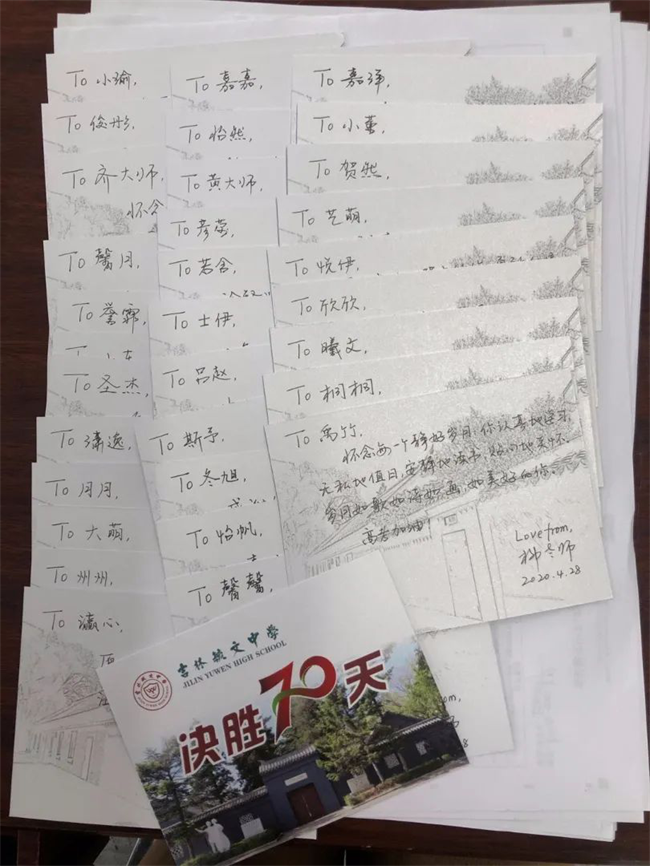 To 小瑜,
To 俊彤,
To 齐大师,
怀念
To 馨月,
To 誉霏,
To 圣杰,
To 潇逸,
To 月月,
To 大萌,
To 州州,
To 瀛心,
To 嘉嘉,
To 怡然,
To 黄大师,
To 彦蓉,
To 若含,
To 士伊,
To 吕赵,
To 斯予,
To 冬旭,
To 怡帆,
To 馨馨,
To 嘉洋,
To 小董,
To 贺然,
To 艺萌,
To 悦伊,
To 欣欣,
To 曦文,
To 桐桐,
To 禹竹,
怀念每一个静好岁月,你认真地学习,
无私地值日,安静地读书,友善地关怀.
岁月如歌如诗如画,如美好的你.
高考加油!
Love from,
师
2020.4.28
吉林毓文中学
JILIN YUWEN HIGH SCHOOL
决胜70天
om,